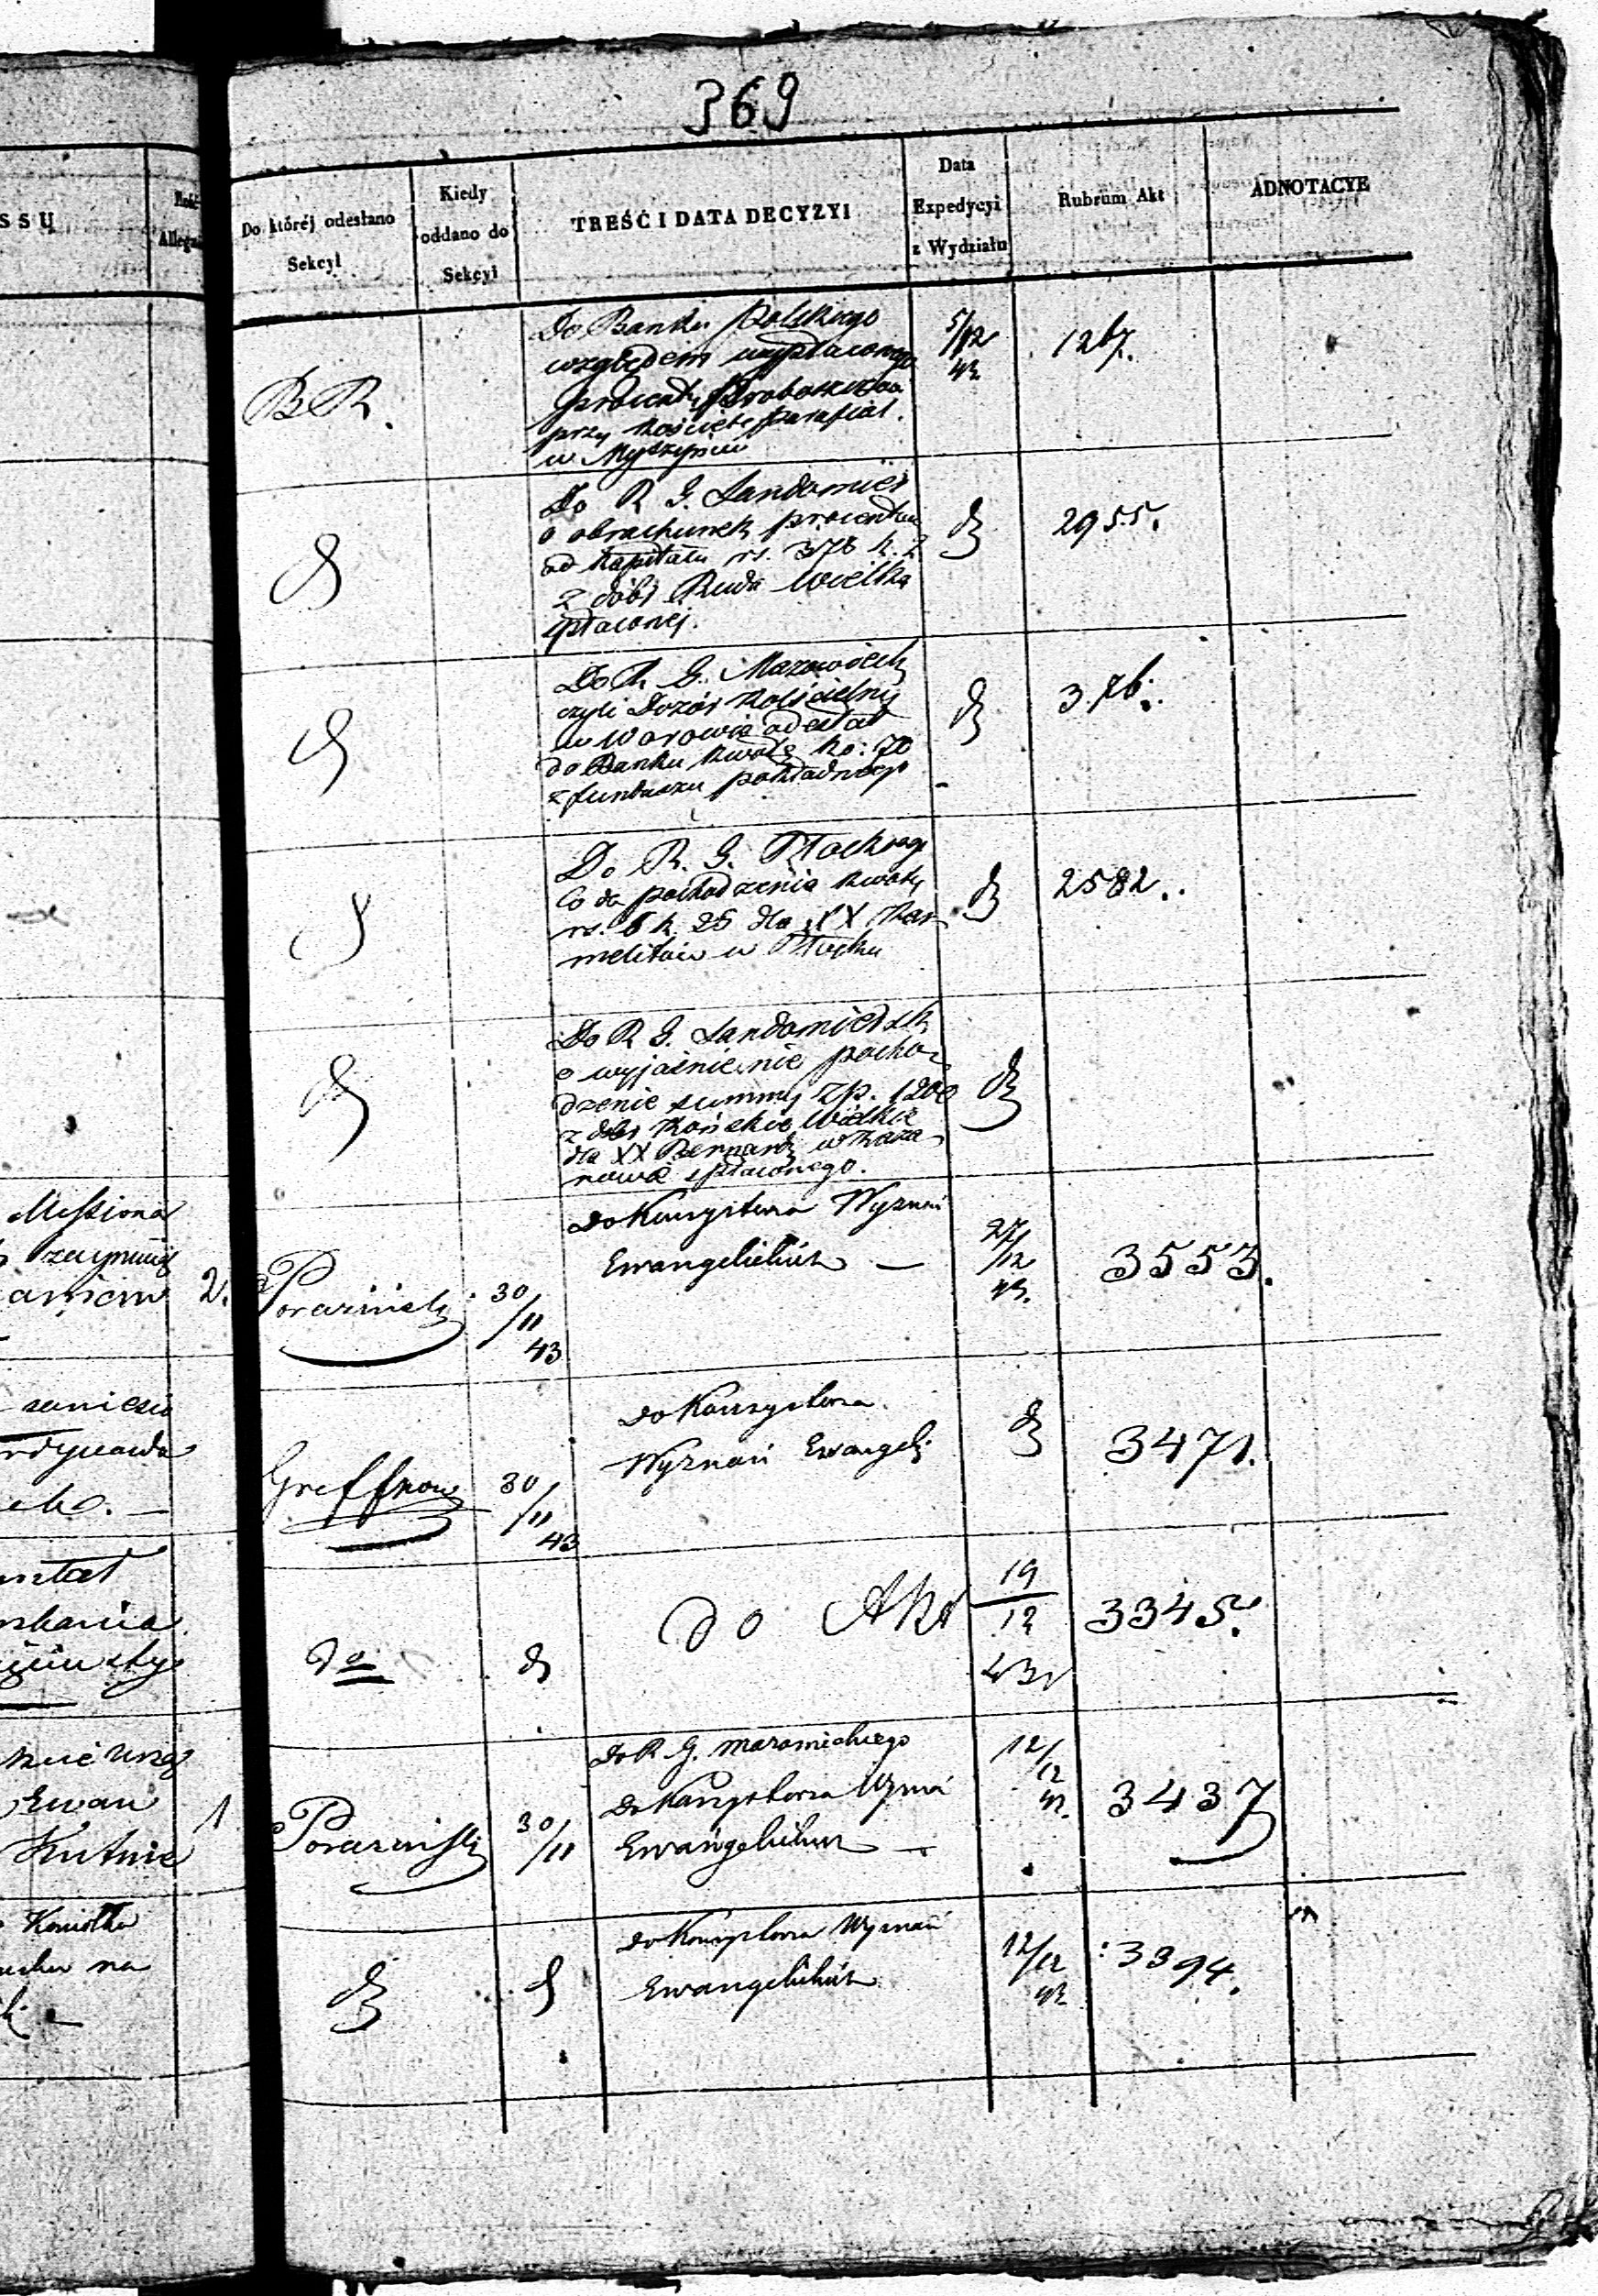 369
SSU
Ilość
Allega
Do któréj odesłano
Sekcyi
Kiedy
oddano do
Sekcyi
TREŚĆ I DATA DECYZYI
Data
Expedycyi
z Wydziału
Rubrum Akt
ADNOTACYE
BR.
Do Banku Polskiego
względem wypłaconego
procentu Proboszczowi
przy Kościele parafial.
w Myszyńcu
5/12
43
1267.
Do R G. Sandomier
o obrachunek procentu
od Kapitału rs. 378 k. 2
z dóbr Ruda Wielka
spłaconej.
d
2955.
Do R G. Mazowieck
czyli Dozór Kościelny
w Worowie odesłał
do Banku kwotę ko: 70
z funduszu pokładnego
d
376.
Do R. G. Płockiego
Co do pochodzenia kwoty
rs. 6 k. 25 dla XX Kar
melitów w Płocku
d
2582.
Do R G. Sandomiersk
o wyjaśnienie pocho
dzenie summy zp. 1200
z dóbr Końskie Wielkie
dla XX Bernard w Kaza
nowie spłaconego.
d
Missiona
zajmuj
aniem
2.
Poraziński
30
/11
43
Do Konsystorza Wyznań
Ewangelickich —
27/
/12
43.
3553.
Greffnow
30
/11
43
Do Konsystorza
Wyznań Ewangeli
d
3471.
do
d
do Akt
19
12
43
3345.
Ewan
Kutnie
1
Poraziński
30
/11
Do R G. Mazowieckiego
do Konsystorza Wyznań
Ewangelickich —
12/
12
43.
3437
na
d
d
do Konsystorza Wyznań
Ewangelickich
12/12
43
3394.